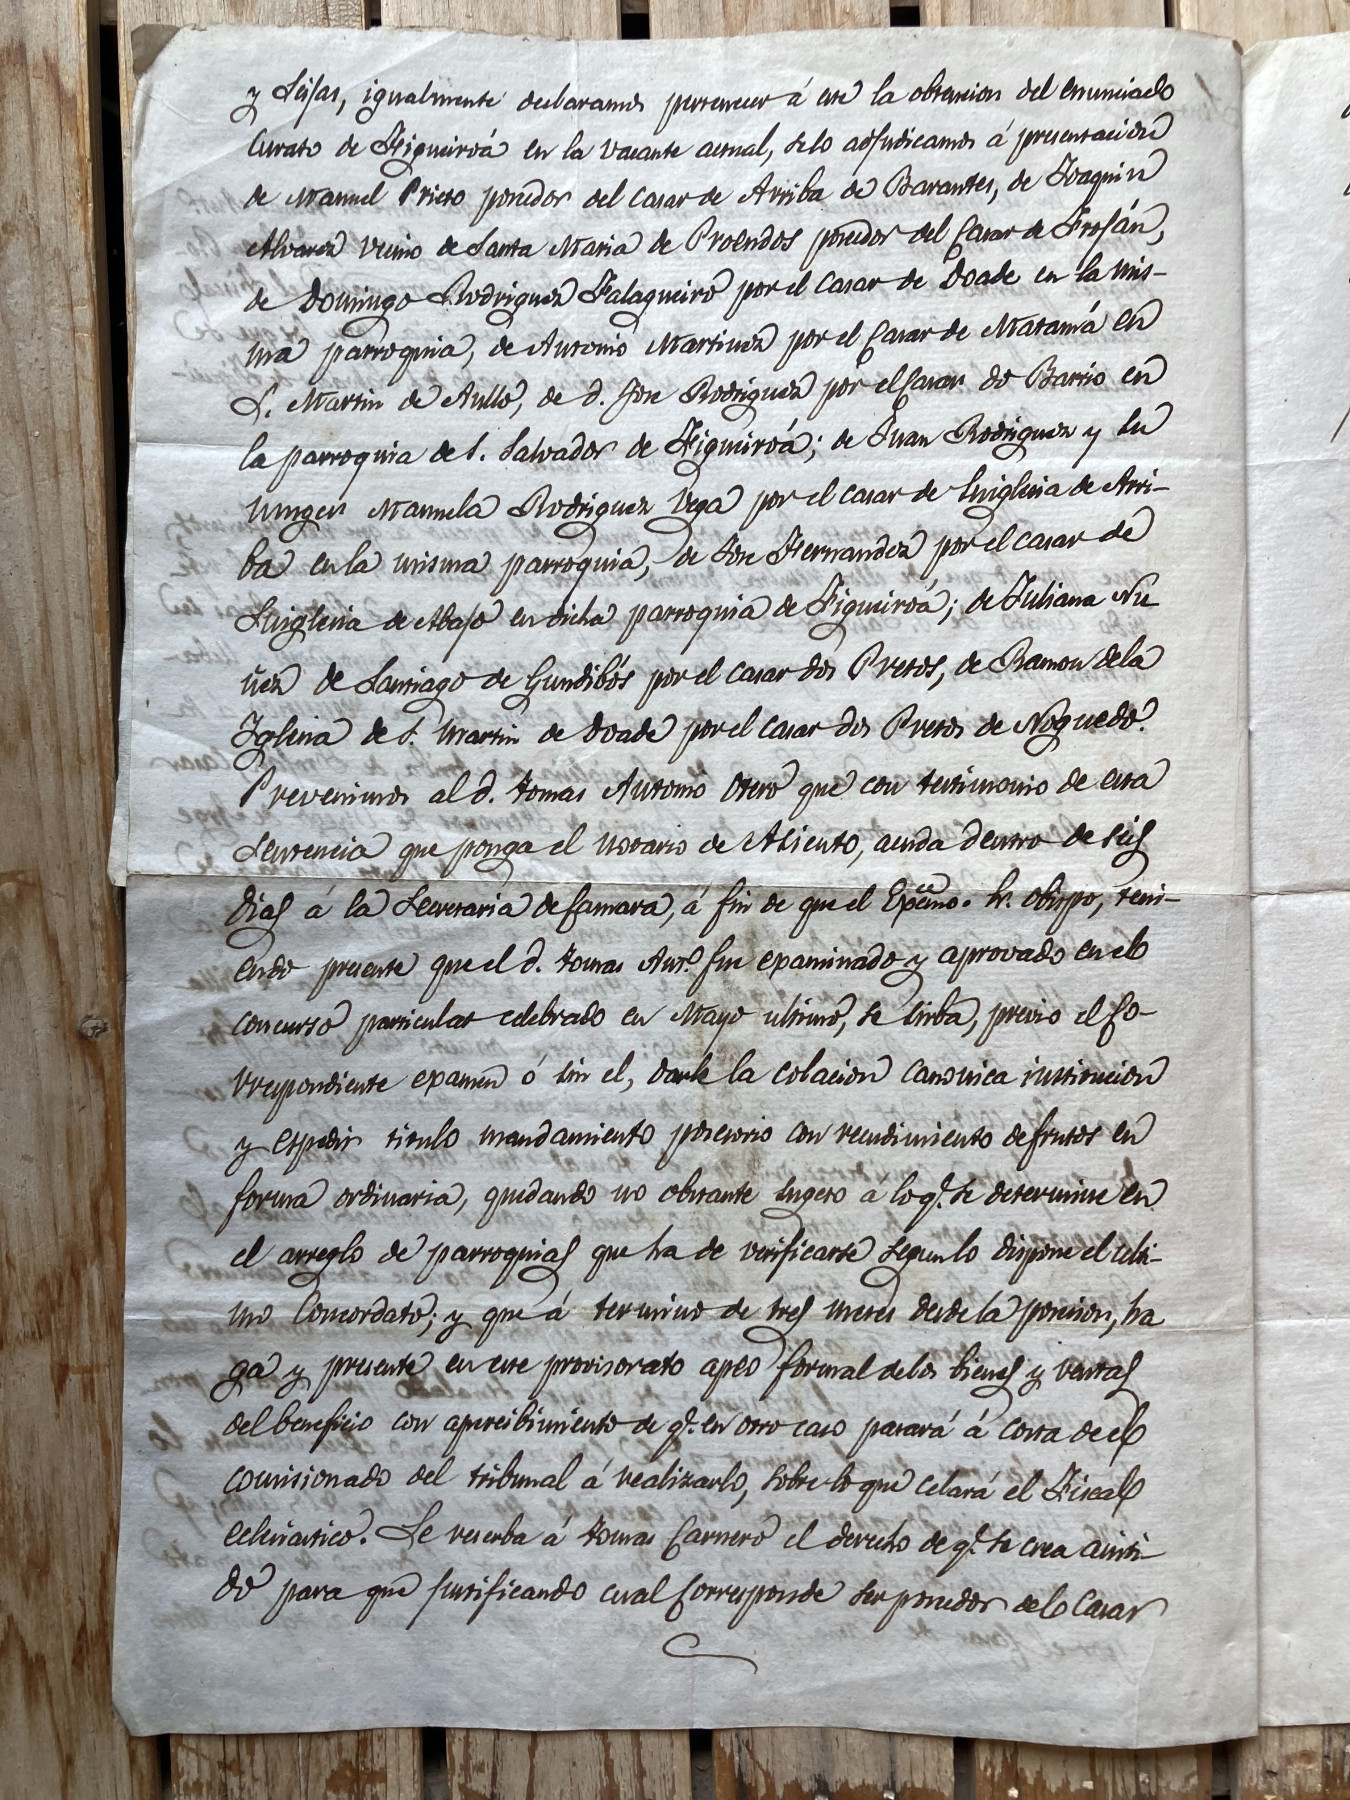 y Seijas, igualmente declaramos pertenecer á este la obtencion del enunciado
Curato de Figueiroá en la vacante actual, se lo adjudicamos á presentacion
de Manuel Prieto poseedor del casar de Arriba de Barantes, de Joaquin
Alvarez vecino de Santa Maria de Proendos poseedor del Casar de Frojan,
de Domingo Rodriguez Falagueiro por el casar de Doade en la mis-
ma parroquia, de Antonio Martinez por el Casar de Matamá en
S. Martin de Anllo, de d. Jose Rodriguez por el Casar do Barrio en
la parroquia de S. Salvador de Figueiroá; de Juan Rodriguez y su
muger Manuela Rodriguez Vega por el casar de Suiglesia de Arri-
ba en la misma parroquia, de Jose Hernandez por el casar de
Suiglesia de Abajo en dicha parroquia de Figueiroá; de Juliana Nu
ñez de Santiago de Gundibós por el casar dos Pretos, de Ramon de la
Iglesia de S. Martin de Doade por el casar dos Pretos de Noguedo.
Prevenimos al d. Tomas Antonio Otero que con testimonio de esta
Sentencia que ponga el Notario de Asiento, acuda dentro de seis
dias á la Secretaria de Camara, á fin de que el Excmo. Sr. Obispo, teni-
endo presente que el d. Tomas Ant.º fue examinado y aprovado en el
concurso particular celebrado en Mayo ultimo, se sirba, previo el Co-
rrespondiente examen ó sin el, darle la colacion canonica institucion
y espedir titulo mandamiento posesorio con recudimiento de frutos en
forma ordinaria, quedando no obstante sugeto á lo q.e se determine en
el arreglo de parroquias que ha de verificarse segun lo dispone el ulti-
mo Concordato; y que á termino de tres meses desde la posesion, ha
ga y presente en este provisorato apeo formal de los bienes y rentas
del beneficio con apercibimiento de q.e en otro caso pasará á costa de el
comisionado del tribunal á realizarlo, sobre lo que celará el Fiscal
eclesiastico. Se reserba á Tomas Carnero el derecho de q.e se crea asisti-
do para que justificando cual Corresponde ser poseedor del Casar